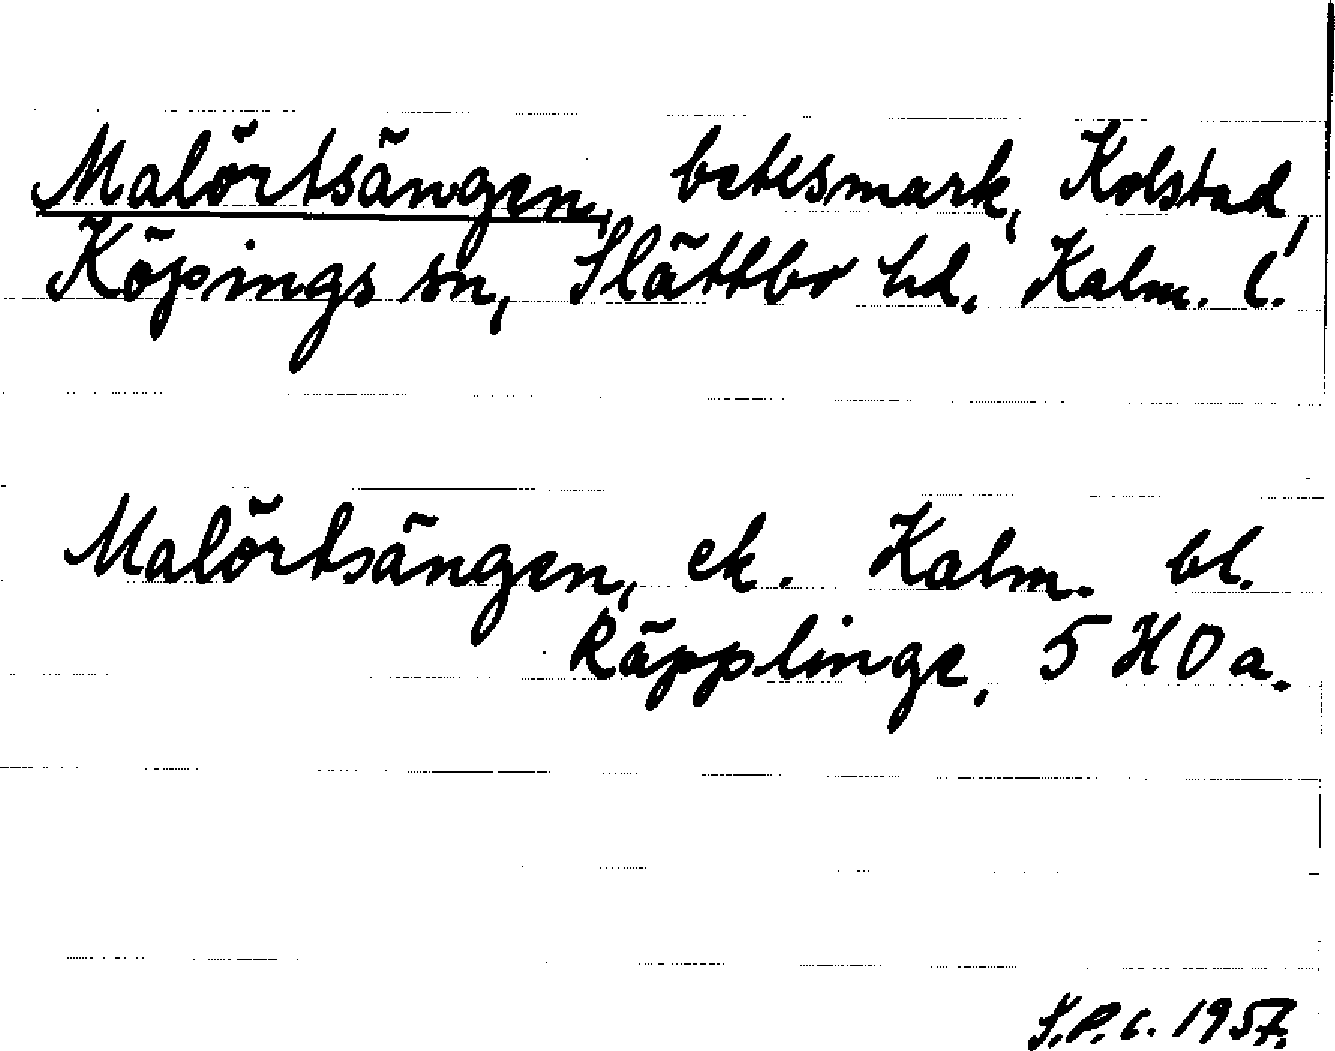 Malörtsängen, betesmark, Kolstad,
Köpings sn, Slättbo hd. Kalm. l.
Malörtsängen, ek. Kalm. bl.
Räpplinge, 5 H O a.
S.P. c. 1957.